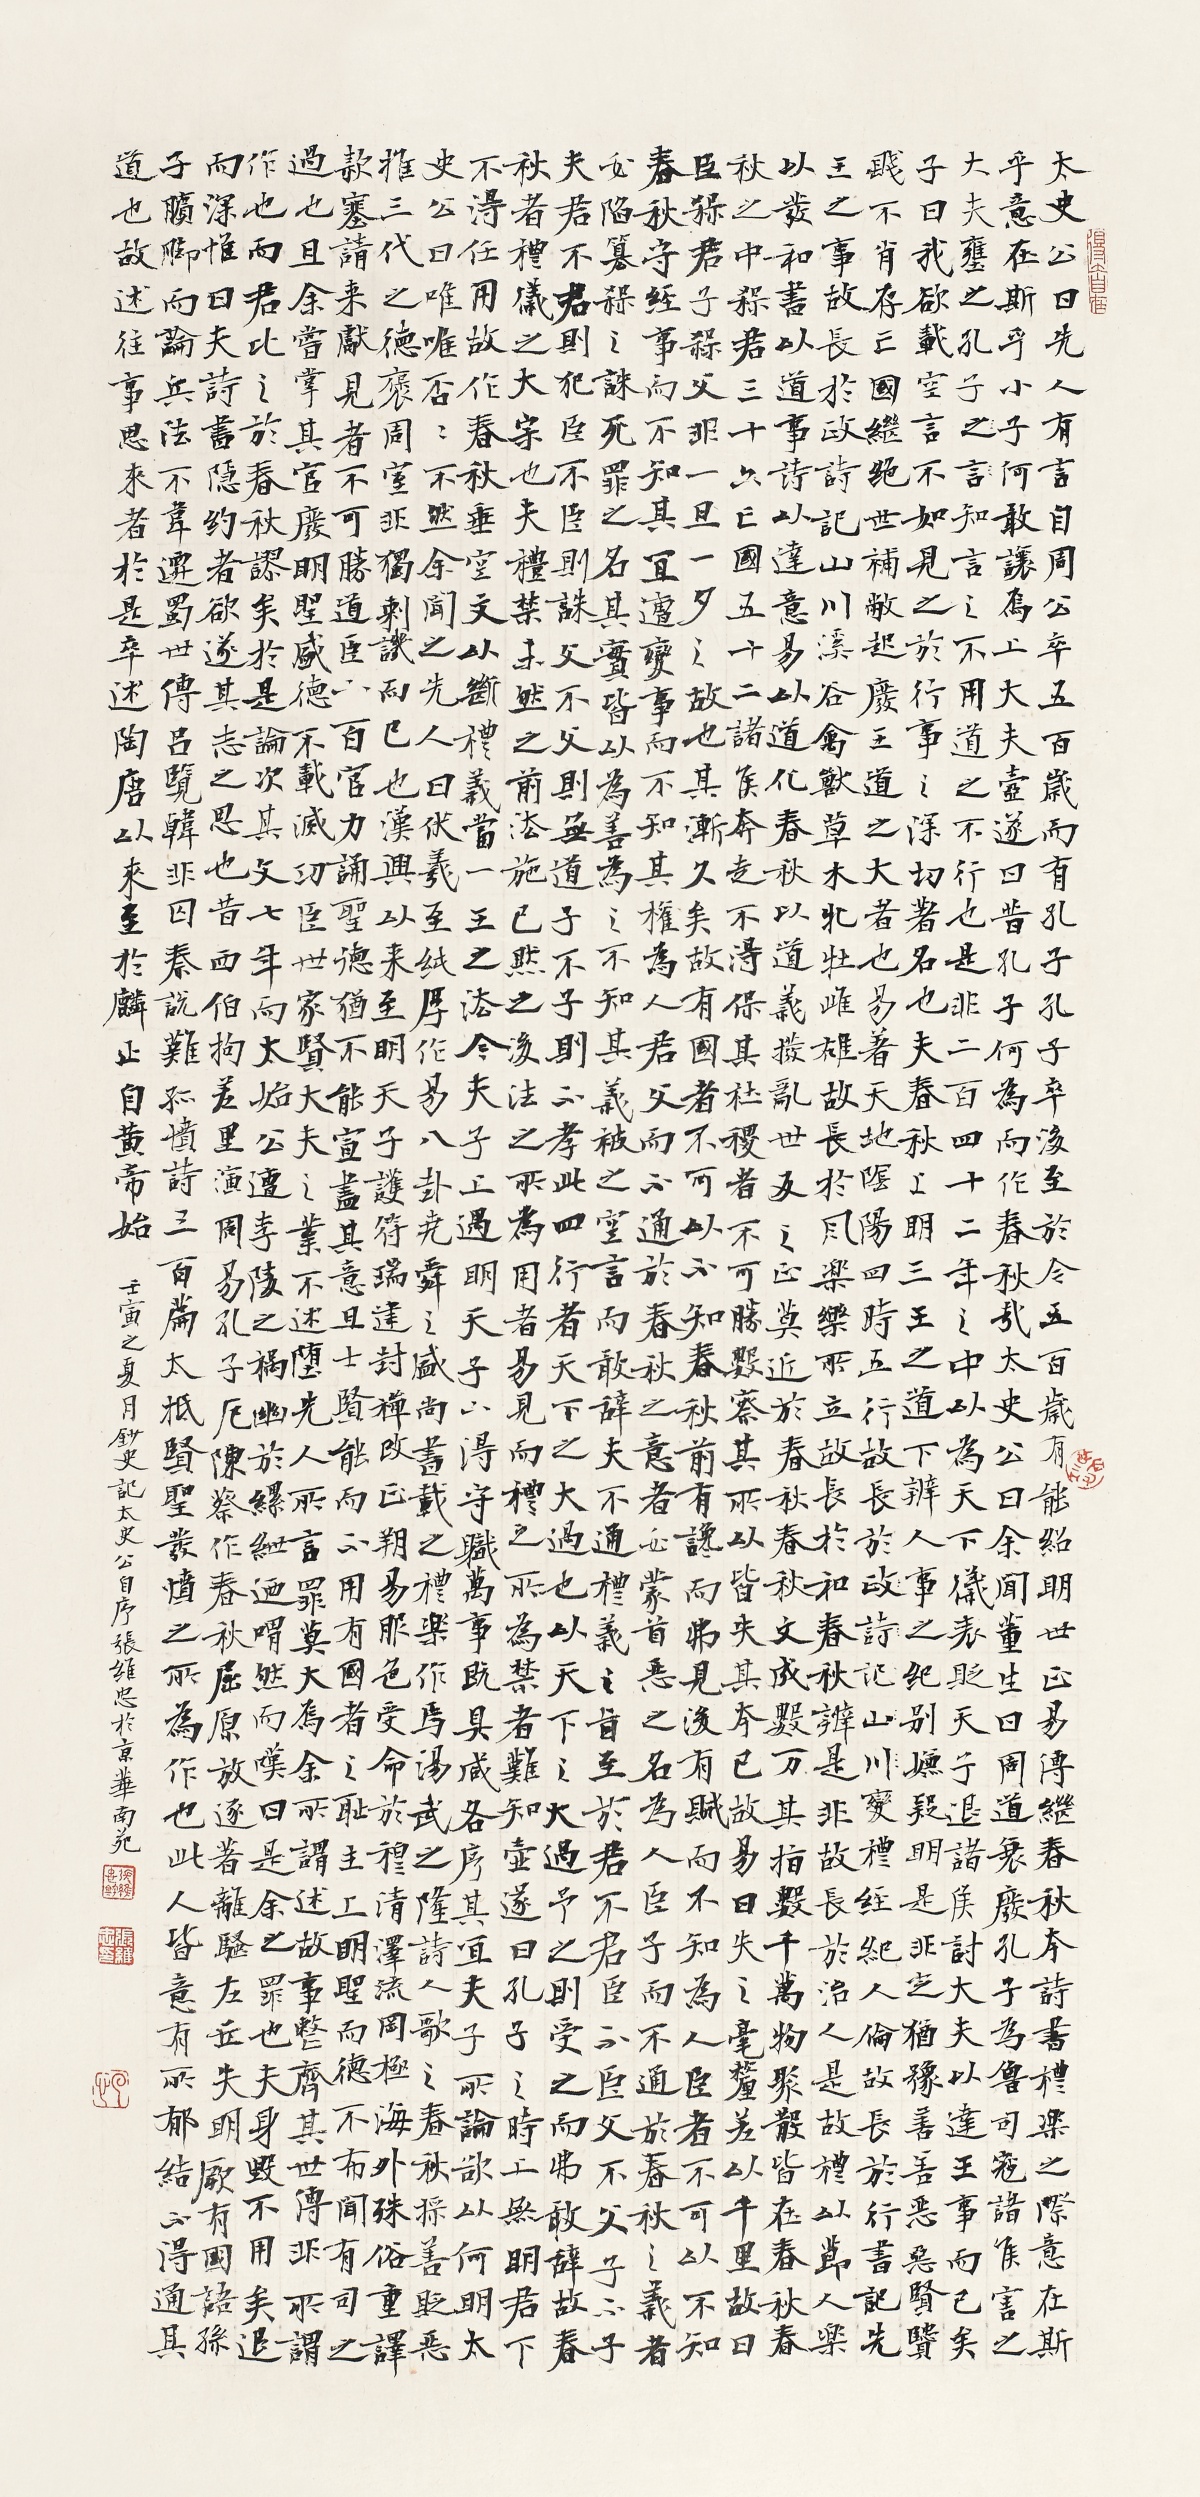 太史公曰先人有言自周公卒五百歲而有孔子孔子卒後至於今五百歲有能紹明世正易傳繼春秋本詩書禮樂之際意在斯
乎意在斯乎小子何敢讓焉上大夫壺遂曰昔孔子何為而作春秋哉太史公曰余聞董生曰周道衰廢孔子為魯司寇諸侯害之
大夫壅之孔子之言知言之不用道之不行也是非二百四十二年之中以為天下儀表貶天子退諸侯討大夫以達王事而已矣
子曰我欲載空言不如見之於行事之深切著名也夫春秋上明三王之道下辨人事之紀别嫌疑明是非定猶豫善善惡惡賢賢
賤不肖存亡國繼絕世補敝起廢王道之大者也易著天地陰陽四時五行故長於政詩記山川變禮經紀人倫故長於行書記先
王之事故長於政詩記山川溪谷禽獸草木牝牡雌雄故長於風樂樂所立故長於和春秋辨是非故長於治人是故禮以節人樂
以發和書以道事詩以達意易以道化春秋以道義撥亂世反之正莫近於春秋春秋文成數万其指數千萬物聚散皆在春秋春
秋之中殺君三十六亡國五十二諸侯奔走不得保其社稷者不可勝數察其所以皆失其本已故易曰失之毫釐差以千里故曰
臣弒君子弒父非一旦一夕之故也其漸久矣故有國者不可以不知春秋前有讒而弗見後有賊而不知為人臣者不可以不知
春秋守經事而不知其宜遭變事而不知其權為人君父而不通於春秋之意者必蒙首惡之名為人臣子而不通於春秋之義者
必陷篡弒之誅死罪之名其實皆以為善為之不知其義被之空言而敢辭夫不通禮義之旨至於君不君臣不臣父不父子不子
夫君不君則犯臣不臣則誅父不父則無道子不子則不孝此四行者天下之大過也以天下之大過予之則受之而弗敢辭故春
秋者禮儀之大宗也夫禮禁未然之前法施已然之後法之所為用者易見而禮之所為禁者難知壺遂曰孔子之時上無明君下
不得任用故作春秋垂空文以斷禮義當一王之法今夫子上遇明天子下得守職萬事既具咸各序其宜夫子所論欲以何明太
史公曰唯唯否否不然余聞之先人曰伏羲至純厚作易八卦堯舜之盛尚書載之禮樂作焉湯武之隆詩人歌之春秋採善貶惡
推三代之德褒周室非獨刺譏而已也漢興以來至明天子護符瑞達封禪改正朔易服色受命於穆清澤流罔極海外殊俗重譯
款塞請來獻見者不可勝道臣下百官力誦聖德猶不能宣盡其意且士賢能而不用有國者之耻主上明聖而德不布聞有司之
過也且余嘗掌其官廢明聖盛德不載滅功臣世家賢大夫之業不述墮先人所言罪莫大焉余所謂述故事整齊其世傳非所謂
作也而君比之於春秋謬矣於是論次其文七年而太始公遭李陵之禍幽於縲紲迺喟然而嘆曰是余之罪也夫身毀不用矣退
而深惟曰夫詩書隱約者欲遂其志之思也昔西伯拘羑里演周易孔子厄陳蔡作春秋屈原放逐著離騷左丘失明厥有國語孫
子臏脚而論兵法不韋遷蜀世傳呂覽韓非囚秦說難孤憤詩三百篇太抵賢聖發憤之所為作也此人皆意有所郁結不得通其
道也故述往事思來者於是卒述陶唐以來至於麟止自黃帝始
壬寅之夏月鈔史記太史公自序張維忠於京華南苑